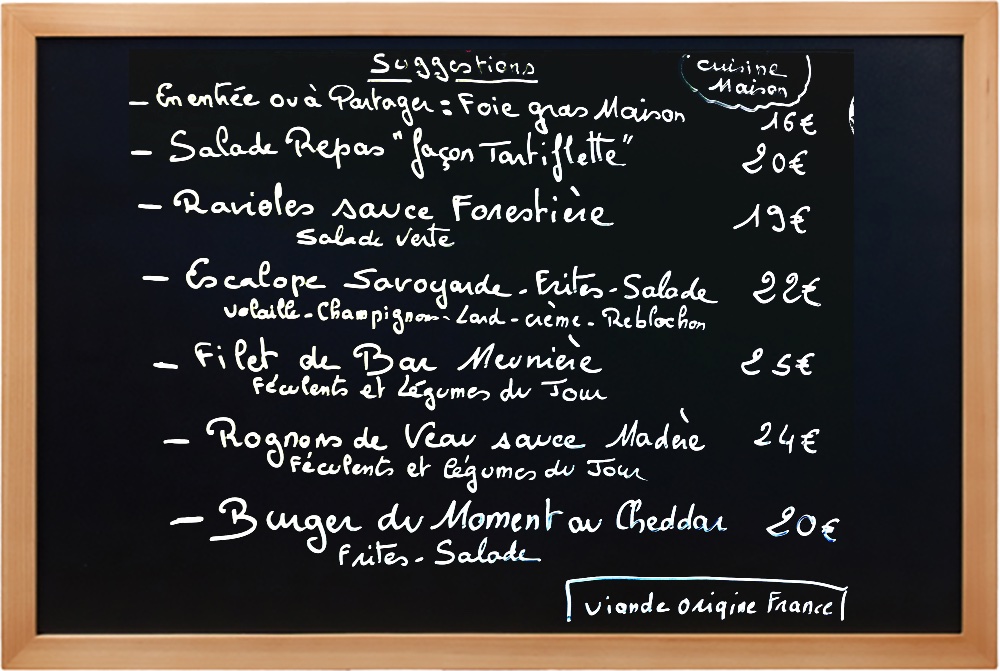 Suggestions
cuisine
Maison
- En entrée ou à Partager : Foie gras Maison 16€
- Salade Repas "façon Tartiflette" 20€
- Ravioles sauce Forestière 19€
Salade verte
- Escalope Savoyarde - Frites - Salade 22€
volaille - Champignon - Lard - crème - Reblochon
- Filet de Bar Meunière 25€
Féculents et Légumes du Jour
- Rognons de Veau sauce Madère 24€
Féculents et légumes du Jour
- Burger du Moment au Cheddar 20€
Frites - Salade
viande origine France